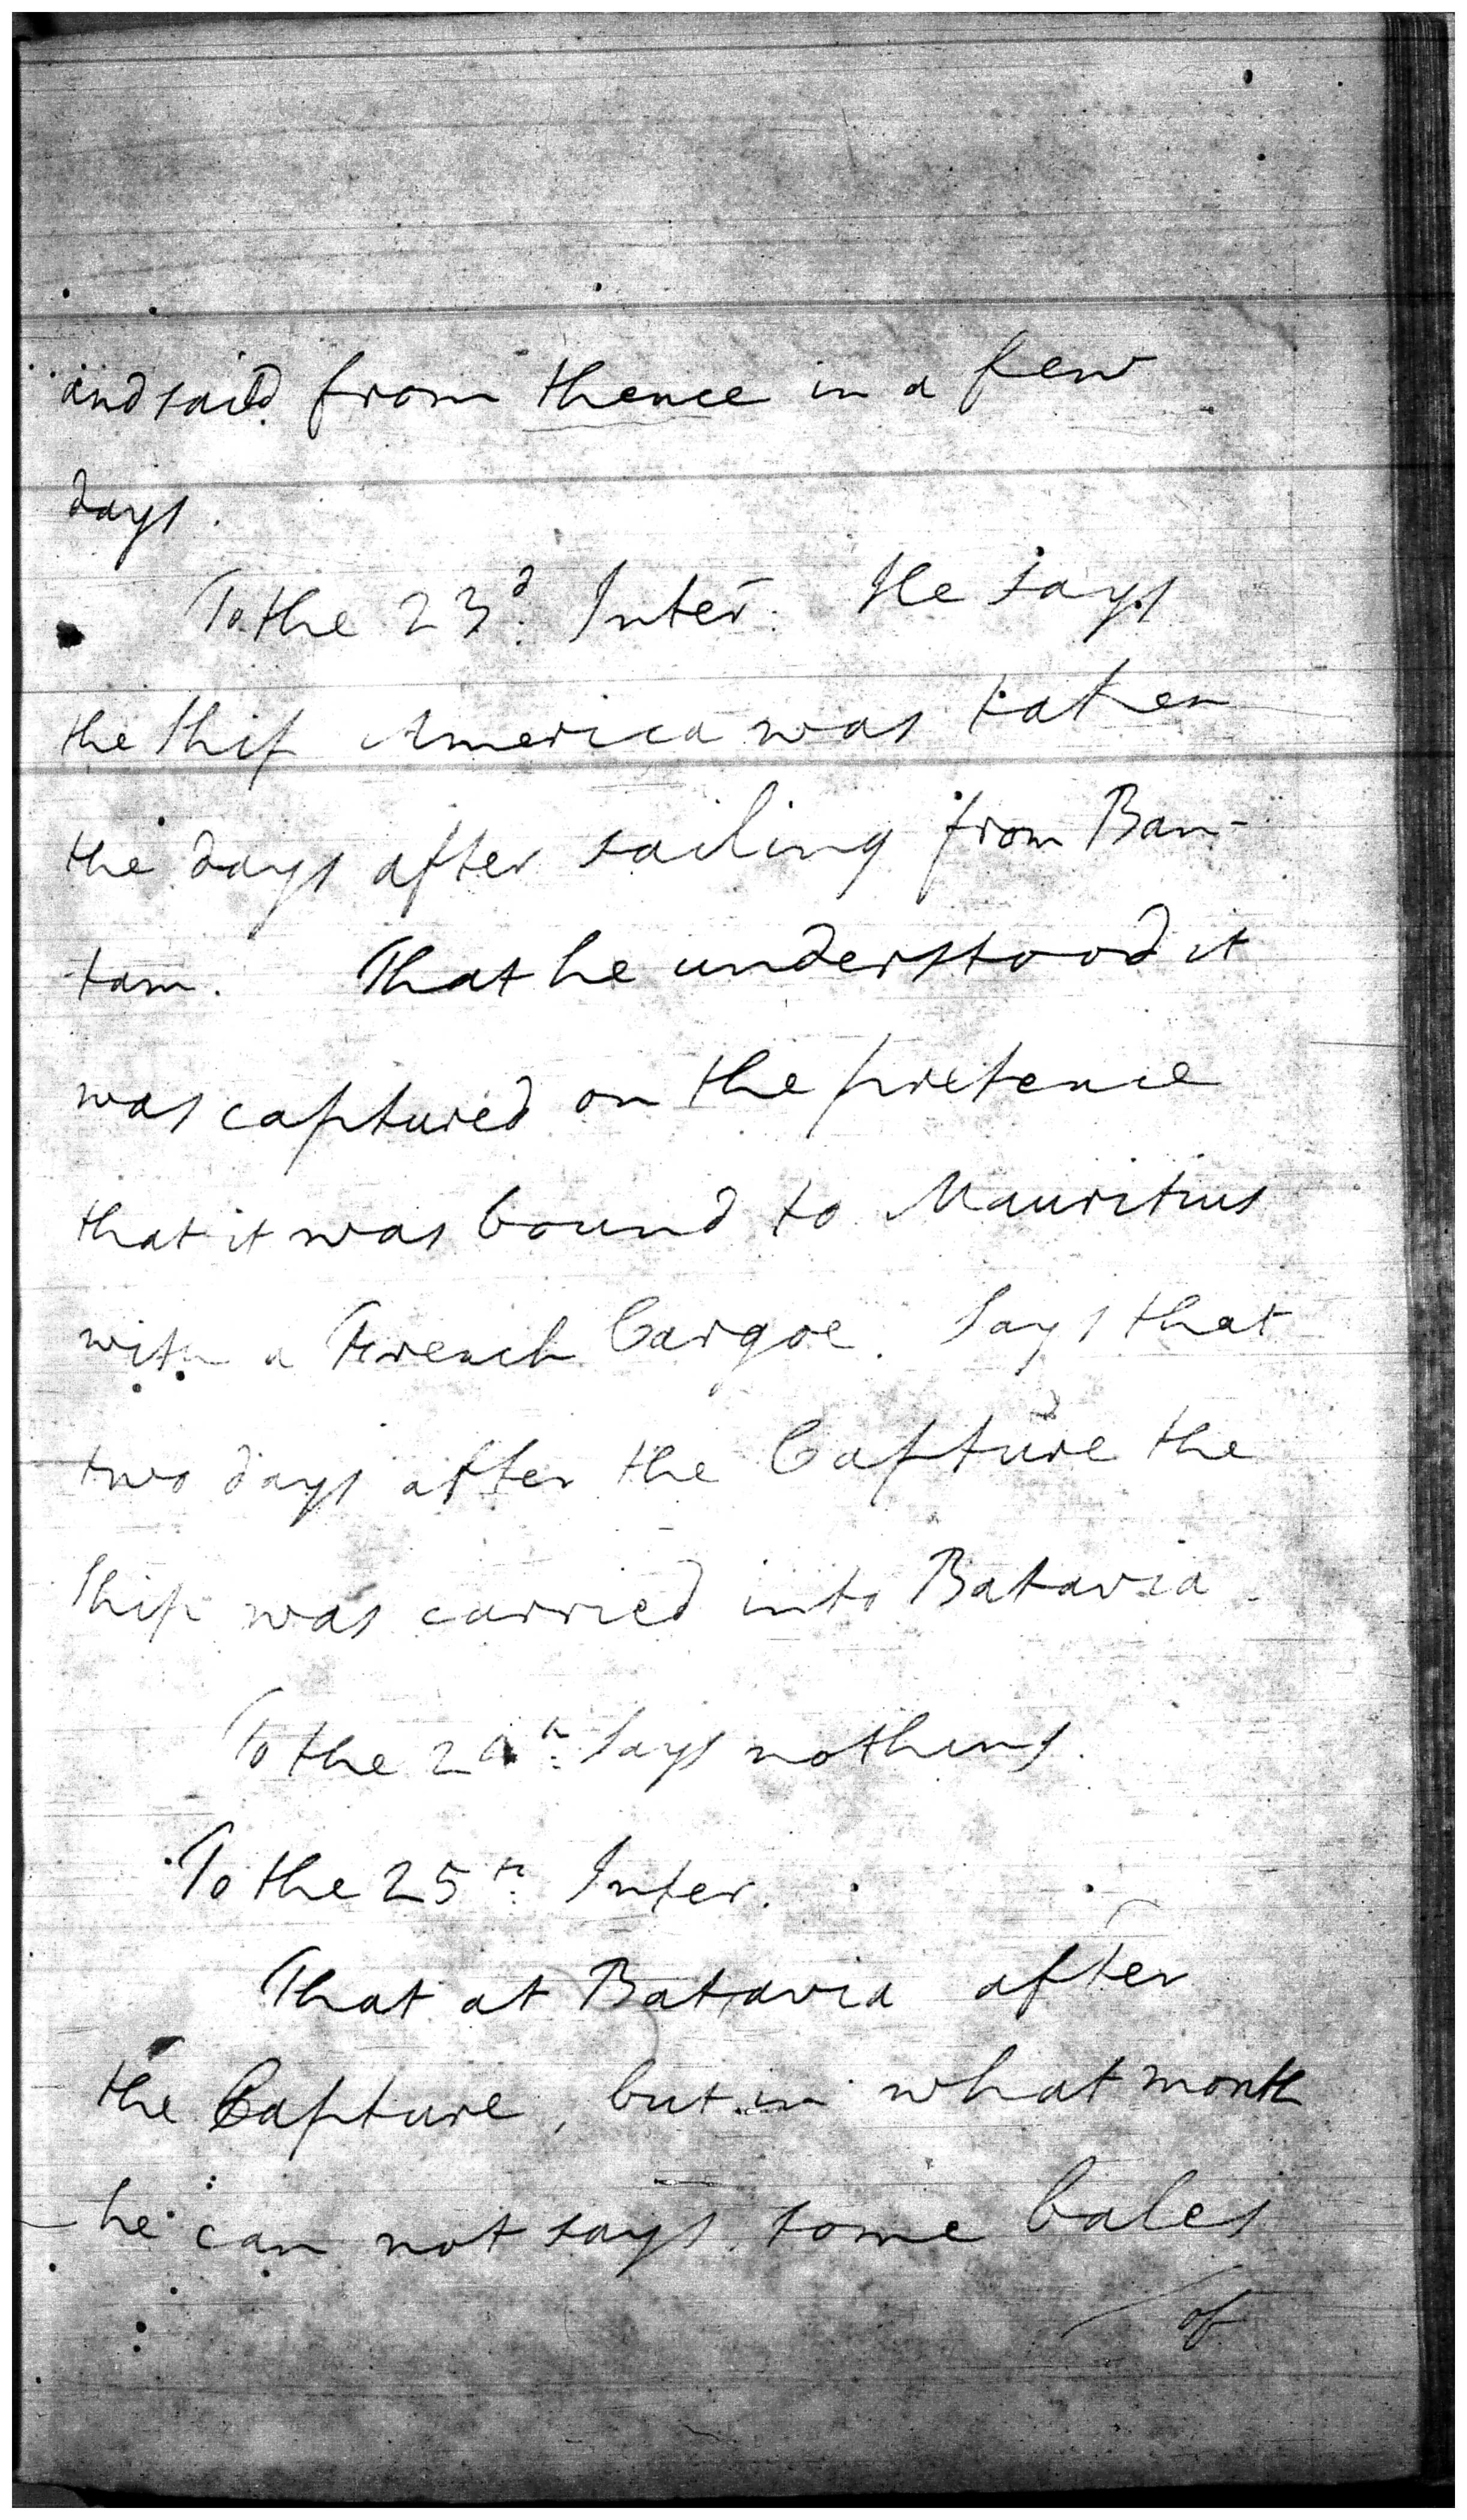 and saild from thence in a few
days.
To the 23d. Inter. He says
the Ship America was taken
the days after sailing from Ban-
tam. That he understood it
was captured on the pretence
that it was bound to Mauritius
with a French Cargoe. Says that
two days after the Capture the
Ship was carried into Batavia
To the 24th. Says nothing.
To the 25th. Inter.
That at Batavia after
the Capture, but in what month
he can not says some bales
of